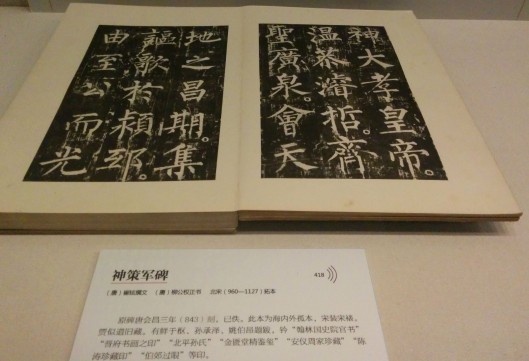 神大孝皇帝。
温恭濬哲。齊
聖廣泉。會天
地之昌期。集
謳歌於頴邸。
由至公而光
神策军碑
418
（唐）崔铉撰文 （唐）柳公权正书 北宋（960—1127）拓本
原碑唐会昌三年（843）刻，已佚。此本为海内外孤本，宋装宋裱。
贾似道旧藏。有鲜于枢、孙承泽、姚伯昂题跋，钤“翰林国史院官书”
“晋府书画之印”“北平孙氏”“金匮室精鉴玺”“安仪周家珍藏”“陈
涛珍藏印”“伯郊过眼”等印。